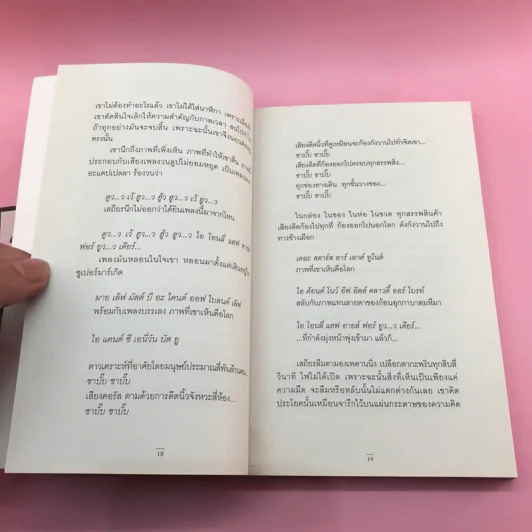 เขาไม่ต้องทำอะไรแล้ว เขาไม่ได้ใส่นาฬิกา เพราะเมื่อ
เขาตัดสินใจเลิกให้ความสำคัญกับกาลเวลา
ถ้าทุกอย่างมันจะจบสิ้น เพราะฉะนั้นเขาจึงนอน
ตรงนั้น
เขานึกถึงภาพที่เพิ่งเห็น ภาพที่ทำให้เขาตื่น
ประกอบกับเสียงเพลงวนลูปไม่ยอมหยุด เป็นเพลง
อะแคปเปลลา ร้องวนว่า
ฮูว...ว เว้ ฮูว...ว ฮู้ว ฮูว...ว เว้ ฮูว...ว
เสถียรนึกไม่ออกว่าได้ยินเพลงนี้มาจากไหน
ฮูว...ว เว้ ฮูว...ว ฮู้ว ฮูว...ว ไอ โอนลี่ แฮฟ อายส์
ฟอร์ ยูว...ว เดียร์...
เพลงมันหลอนในใจเขา หลอนมาตั้งแต่เดินอยู่ใน
ซูเปอร์มาร์เก็ต
มาย เลิฟ มัสต์ บี อะ ไคนด์ ออฟ ไบลนด์ เลิฟ
พร้อมกับเพลงบรรเลง ภาพที่เขาเห็นคือโลก
ไอ แคนต์ ซี เอนี่วัน บัต ยู
ดาวเคราะห์ที่อาศัยโดยมนุษย์ประมาณสี่พันล้านคน...
ชาบั๊บ ชาบั๊บ
เสียงคอรัส ตามด้วยการดีดนิ้วจังหวะสี่ห้อง...
ชาบั๊บ ชาบั๊บ
18
เสียงดีดนิ้วที่ดูเหมือนจะก้องกังวานไปทั่วจิตเขา...
ชาบั๊บ ชาบั๊บ
เสียงดีดที่ก้องออกไปครอบทุกสรรพสิ่ง...
ชาบั๊บ ชาบั๊บ
ทุกช่องทางเดิน ทุกชั้นวางของ...
ชาบั๊บ ชาบั๊บ
ในกล่อง ในซอง ในห่อ ในขวด ทุกสรรพสินค้า
เสียงดีดก้องไปทุกที่ ก้องออกไปนอกโลก ดังกังวานไปถึง
ทางช้างเผือก
เดอะ สตาร์ส อาร์ เอาต์ ทูไนส์
ภาพที่เขาเห็นคือโลก
ไอ ด้อนต์ โนว์ อีฟ อิตส์ คลาวดี้ ออร์ ไบรท์
สลับกับภาพแทนสายตาของก้อนอุกกาบาตมหึมา
ไอ โอนลี่ แฮฟ อายส์ ฟอร์ ยูว...ว เดียร์...
...ที่กำลังมุ่งหน้าพุ่งเข้ามา แล้วก็...
เสถียรลืมตามองเพดานนิ่ง เปลือกตากะพริบทุกสิบสี่
วินาที ไฟไม่ได้เปิด เพราะฉะนั้นสิ่งที่เห็นเป็นเพียงแค่
ความมืด จะลืมหรือหลับนั้นไม่แตกต่างกันเลย เขาคิด
ประโยคนั้นเหมือนจารึกไว้บนแผ่นกระดาษของความคิด
19